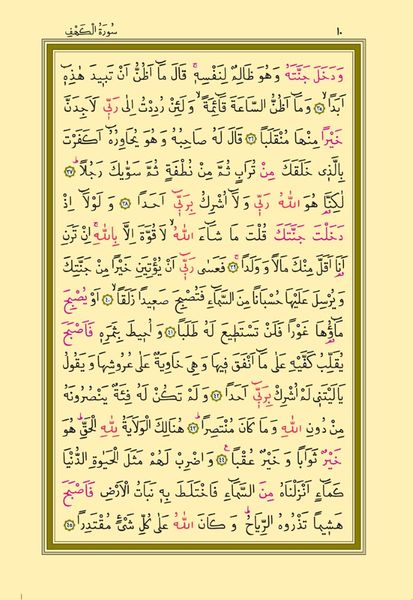 سُورَةُ الْكَهْفِ ١٠
وَدَخَلَ جَنَّتَهُ وَهُوَ ظَالِمٌ لِنَفْسِهٖۚ قَالَ مَٓا اَظُنُّ اَنْ تَب۪يدَ هٰذِه۪ٓ
اَبَدًاۙ ﴿٣٥﴾ وَمَٓا اَظُنُّ السَّاعَةَ قَٓائِمَةًۙ وَلَئِنْ رُدِدْتُ اِلٰى رَبّ۪ي لَاَجِدَنَّ
خَيْرًا مِنْهَا مُنْقَلَبًا ﴿٣٦﴾ قَالَ لَهُ صَاحِبُهُ وَهُوَ يُحَاوِرُهُٓ اَكَفَرْتَ
بِالَّذ۪ي خَلَقَكَ مِنْ تُرَابٍ ثُمَّ مِنْ نُطْفَةٍ ثُمَّ سَوّٰيكَ رَجُلًاۜ ﴿٣٧﴾
لٰكِنَّا هُوَ اللّٰهُ رَبّ۪ي وَلَٓا اُشْرِكُ بِرَبّ۪ٓي اَحَدًا ﴿٣٨﴾ وَلَوْلَٓا اِذْ
دَخَلْتَ جَنَّتَكَ قُلْتَ مَا شَٓاءَ اللّٰهُۙ لَا قُوَّةَ اِلَّا بِاللّٰهِۚ اِنْ تَرَنِ
اَنَا اَقَلَّ مِنْكَ مَالًا وَوَلَدًاۚ ﴿٣٩﴾ فَعَسٰى رَبّ۪ٓي اَنْ يُؤْتِيَنِ خَيْرًا مِنْ جَنَّتِكَ
وَيُرْسِلَ عَلَيْهَا حُسْبَانًا مِنَ السَّمَٓاءِ فَتُصْبِحَ صَع۪يدًا زَلَقًاۙ ﴿٤٠﴾ اَوْ يُصْبِحَ
مَٓاؤُ۬هَا غَوْرًا فَلَنْ تَسْتَط۪يعَ لَهُ طَلَبًا ﴿٤١﴾ وَاُح۪يطَ بِثَمَرِه۪ فَاَصْبَحَ
يُقَلِّبُ كَفَّيْهِ عَلٰى مَٓا اَنْفَقَ ف۪يهَا وَهِيَ خَاوِيَةٌ عَلٰى عُرُوشِهَا وَيَقُولُ
يَا لَيْتَن۪ي لَمْ اُشْرِكْ بِرَبّ۪ٓي اَحَدًا ﴿٤٢﴾ وَلَمْ تَكُنْ لَهُ فِئَةٌ يَنْصُرُونَهُ
مِنْ دُونِ اللّٰهِ وَمَا كَانَ مُنْتَصِرًاۜ ﴿٤٣﴾ هُنَالِكَ الْوَلَايَةُ لِلّٰهِ الْحَقِّۜ هُوَ
خَيْرٌ ثَوَابًا وَخَيْرٌ عُقْبًا۟ ﴿٤٤﴾ وَاضْرِبْ لَهُمْ مَثَلَ الْحَيٰوةِ الدُّنْيَا
كَمَٓاءٍ اَنْزَلْنَاهُ مِنَ السَّمَٓاءِ فَاخْتَلَطَ بِه۪ نَبَاتُ الْاَرْضِ فَاَصْبَحَ
هَش۪يمًا تَذْرُوهُ الرِّيَاحُۜ وَكَانَ اللّٰهُ عَلٰى كُلِّ شَيْءٍ مُقْتَدِرًا ﴿٤٥﴾